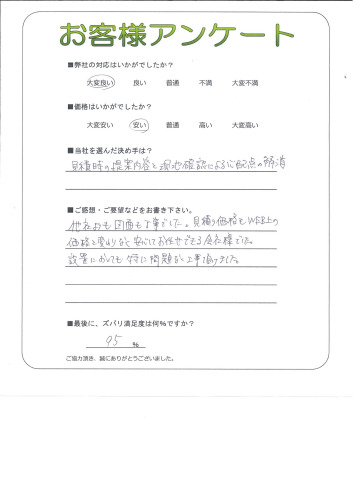 お客様アンケート
■弊社の対応はいかがでしたか?
大変良い 良い 普通 不満 大変不満
■価格はいかがでしたか?
大変安い 安い 普通 高い 大変高い
■当社を選んだ決め手は?
見積時の提案内容と現地確認による心配点の解消
■ご感想・ご要望などをお書き下さい。
他社よりも図面も丁寧でした。見積り価格もWEB上の
価格と変わりなく安心してお任せできる会社様でした。
設置においても特に問題なく工事頂けました。
■最後に、ズバリ満足度は何%ですか?
95 %
ご協力頂き、誠にありがとうございました。